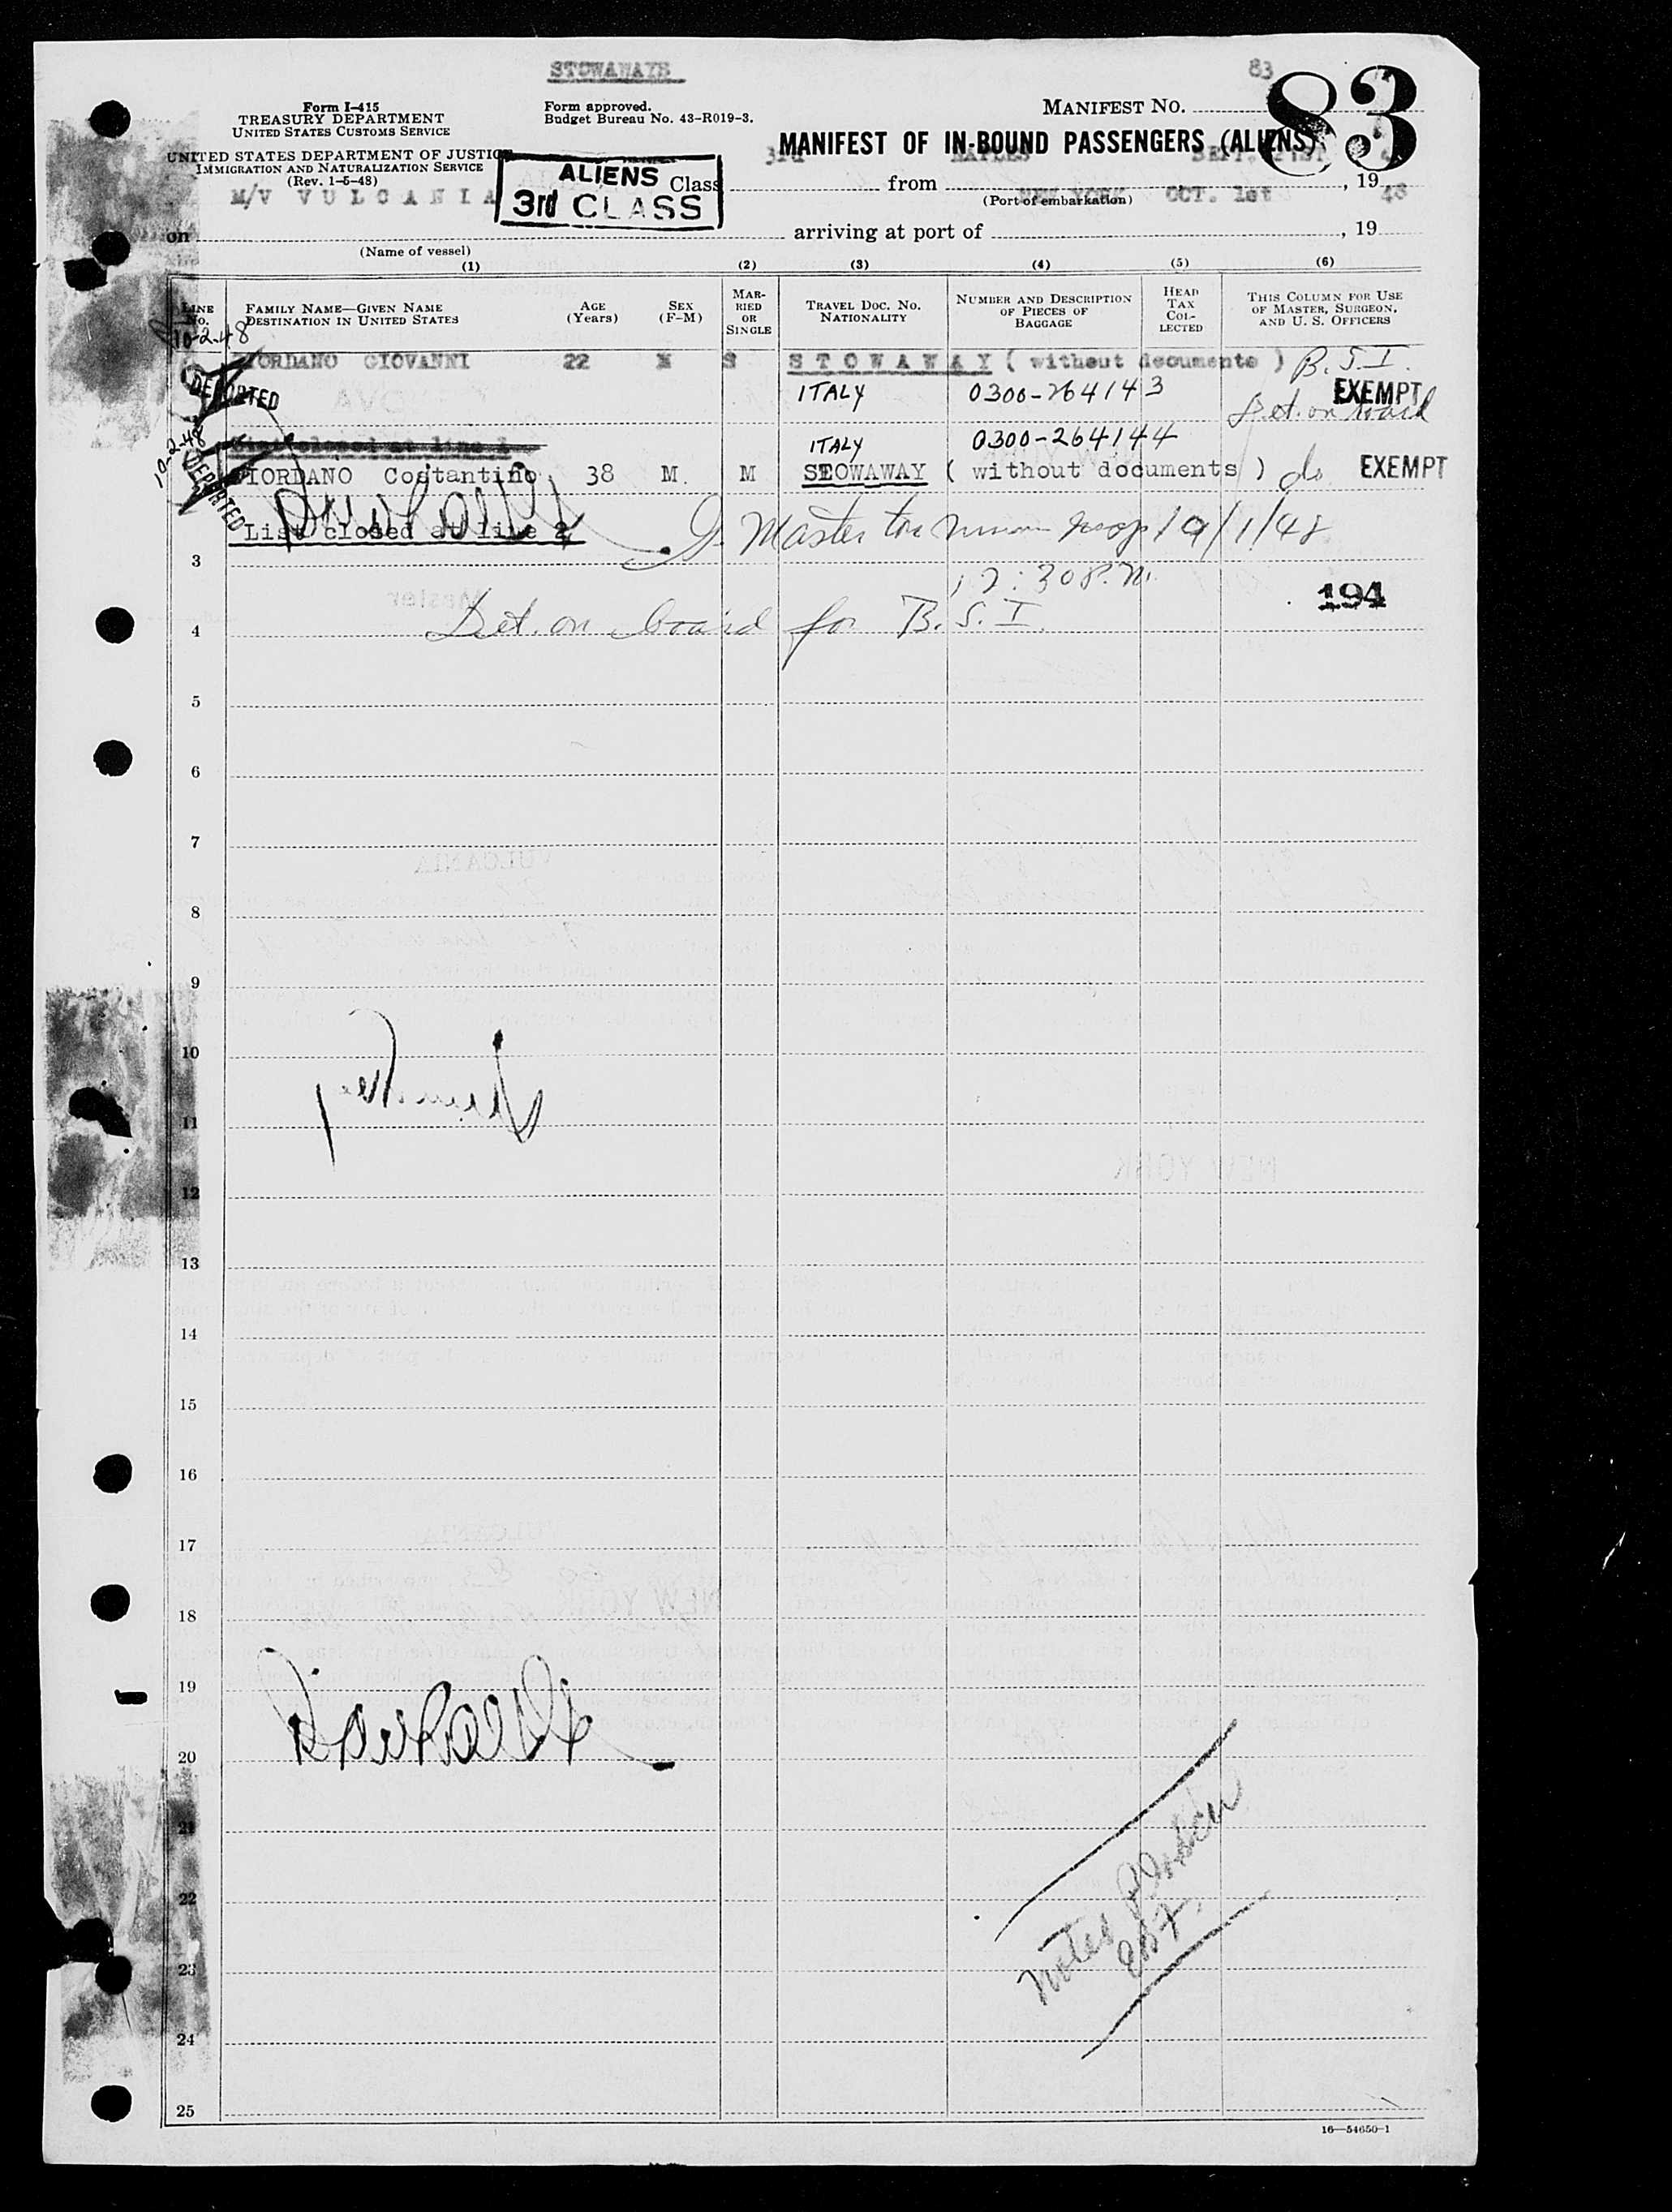 STOWAWAYS
83
83
Form I-415
TREASURY DEPARTMENT
UNITED STATES CUSTOMS SERVICE
Form approved.
Budget Bureau No. 43-R019-3.
MANIFEST NO.
MANIFEST OF IN-BOUND PASSENGERS (ALIENS)
UNITED STATES DEPARTMENT OF JUSTICE
IMMIGRATION AND NATURALIZATION SERVICE
(Rev. 1-5-48)
ALIENS
3rd CLASS
3rd NAPLES SEPT. 21ST
Class from , 19
(Port of embarkation)
M/V VULCANIA
NEW YORK OCT. 1st 48
on arriving at port of , 19
(Name of vessel)
(1) (2) (3) (4) (5) (6)
LINE No. FAMILY NAME—GIVEN NAME DESTINATION IN UNITED STATES AGE (Years) SEX (F-M) MARRIED OR SINGLE TRAVEL DOC. No. NATIONALITY NUMBER AND DESCRIPTION OF PIECES OF BAGGAGE HEAD TAX COLLECTED THIS COLUMN FOR USE OF MASTER, SURGEON, AND U. S. OFFICERS
10-2-48
GIORDANO GIOVANNI 22 M S STOWAWAY ( without documents ) B.S.I.
DEPORTED ITALY 0300-264143 EXEMPT
Det. on board
10-2-48 List closed at line 1 ITALY 0300-264144
DEPORTED GIORDANO Costantino 38 M. M STOWAWAY ( without documents ) do EXEMPT
List closed at line 2
Master
3
12:30 P.M.
194
4 Det. on board for B.S.I.
5
6
7
VULCANIA
8
9
10
11
NEW YORK
12
13
14
15
16
17
VULCANIA
NEW YORK
18
19
20
21
22
Notes
23
24
25
16—54650-1